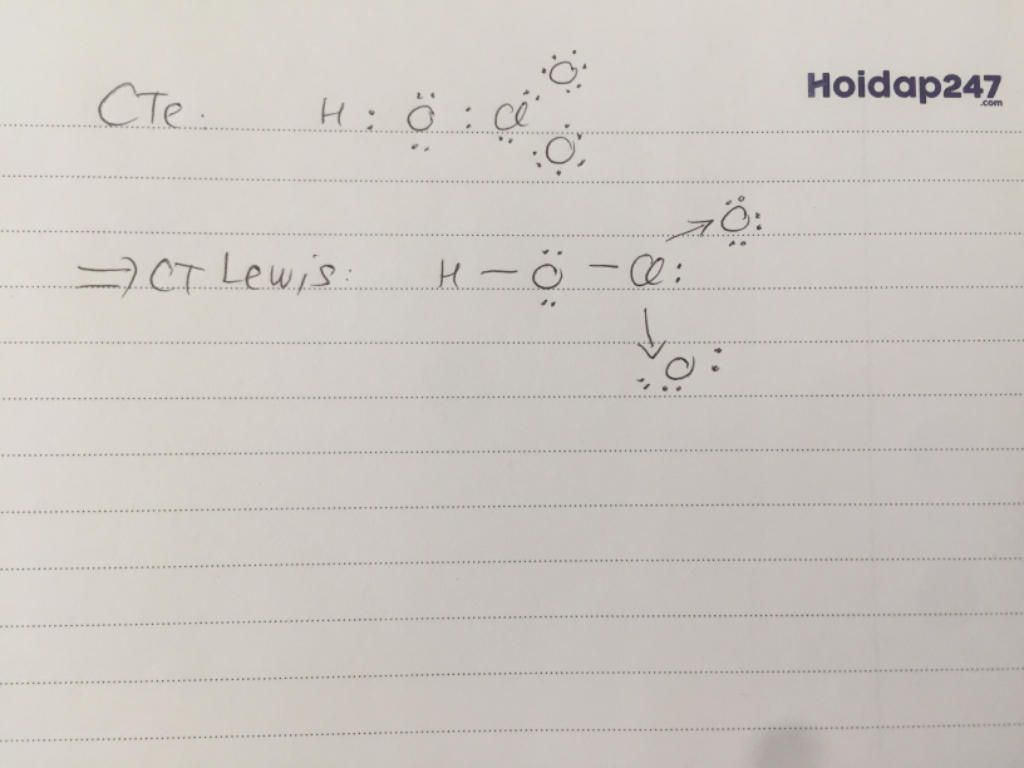 Hoidap247
.com
CTe. H : O : Cl O
O
⇒ CT Lewis: H – O – Cl: → O:
↓
O :